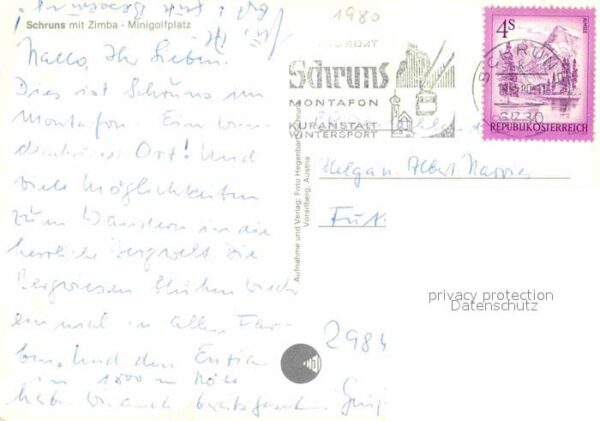 Schruns mit Zimba · Minigolfplatz
Hallo, Ihr Lieben.
Dies ist Schruns im
Montafon. Ein wun-
derschöner Ort! Und
viele Möglichkeiten
zum Wandern in die
herrliche Bergwelt. Die
Bergwiesen blühen wieder
einmal in allen Far-
ben. Und den Enzian
in 1800 m Höhe
haben wir auch
Aufnahme und Verlag: Foto Hegenbart, Schruns
Vorarlberg, Austria
1980
KURORT
Schruns
MONTAFON
KURANSTALT
WINTERSPORT
SCHRUNS
6780
4S
REPUBLIK ÖSTERREICH
Helga u. Albert
2984
privacy protection
Datenschutz